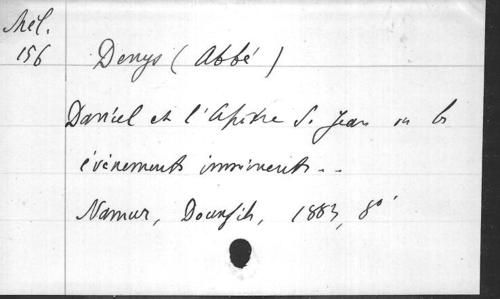 Mél.
156
Denys (Abbé)
Daniel et l'Apôtre S. Jean ou les
événements imminents..
Namur, Doux fils, 1883, 8°